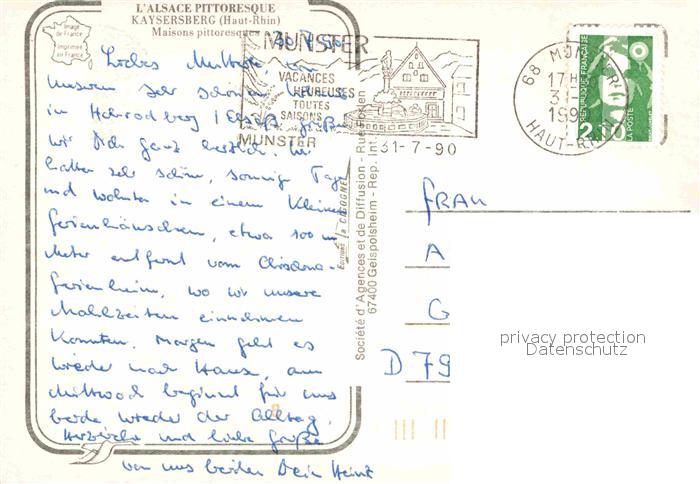 L'ALSACE PITTORESQUE
KAYSERSBERG (Haut-Rhin)
Maisons pittoresques
Image
de France
Imprimée
en France
30.7.90
Liebes Mutterle, von
unserem sehr schönen Urlaub
in Hohrodberg / Elsaß grüßen
wir Dich ganz herzlich. Wir
hatten sehr schöne, sonnige Tage
und wohnten in einem kleinen
Ferienhäuschen, etwa 100 m
Meter entfernt vom
ferienheim, wo wir unsere
Mahlzeiten einnehmen
konnten. Morgen geht es
wieder nach Hause, am
Mittwoch beginnt für uns
beide wieder der Alltag.
Herzliche und liebe Grüße
von uns beiden Dein Heinz
MUNSTER
VACANCES
HEUREUSES
TOUTES
SAISONS
MUNSTER
31-7-90
68 MUNSTER
17H
31
199
HAUT-RHIN
RÉPUBLIQUE FRANÇAISE
LA POSTE
Editions la CIGOGNE
Société d'Agences et de Diffusion - Rue
67400 Geispolsheim - Rep. Int.
FRAU
A
G
D 79
privacy protection
Datenschutz